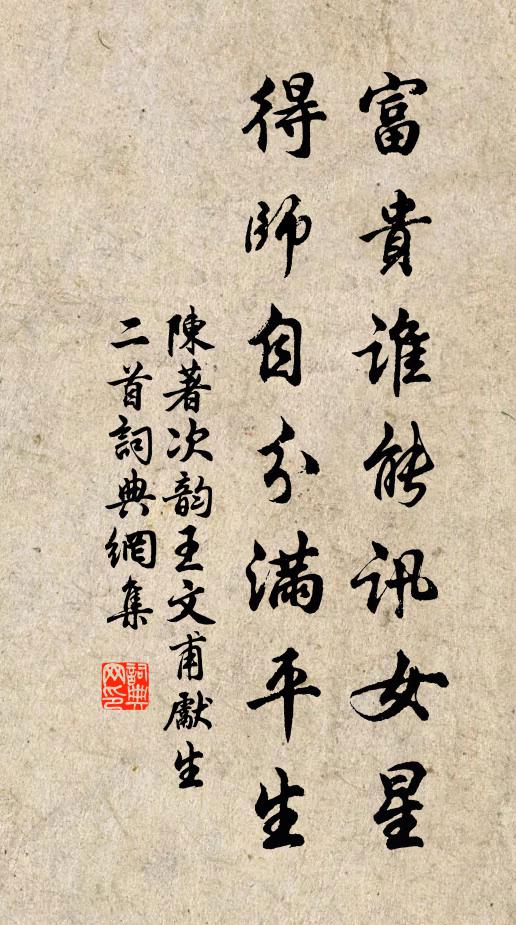 富貴誰能訊女星
得師自分滿平生
陳著次韵王文甫獻生
二首詞典網集
詞典网印